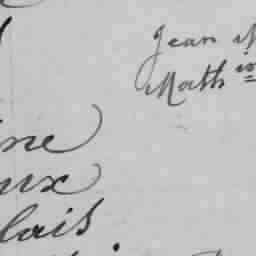 Jean
Math
ine
ux
lais.